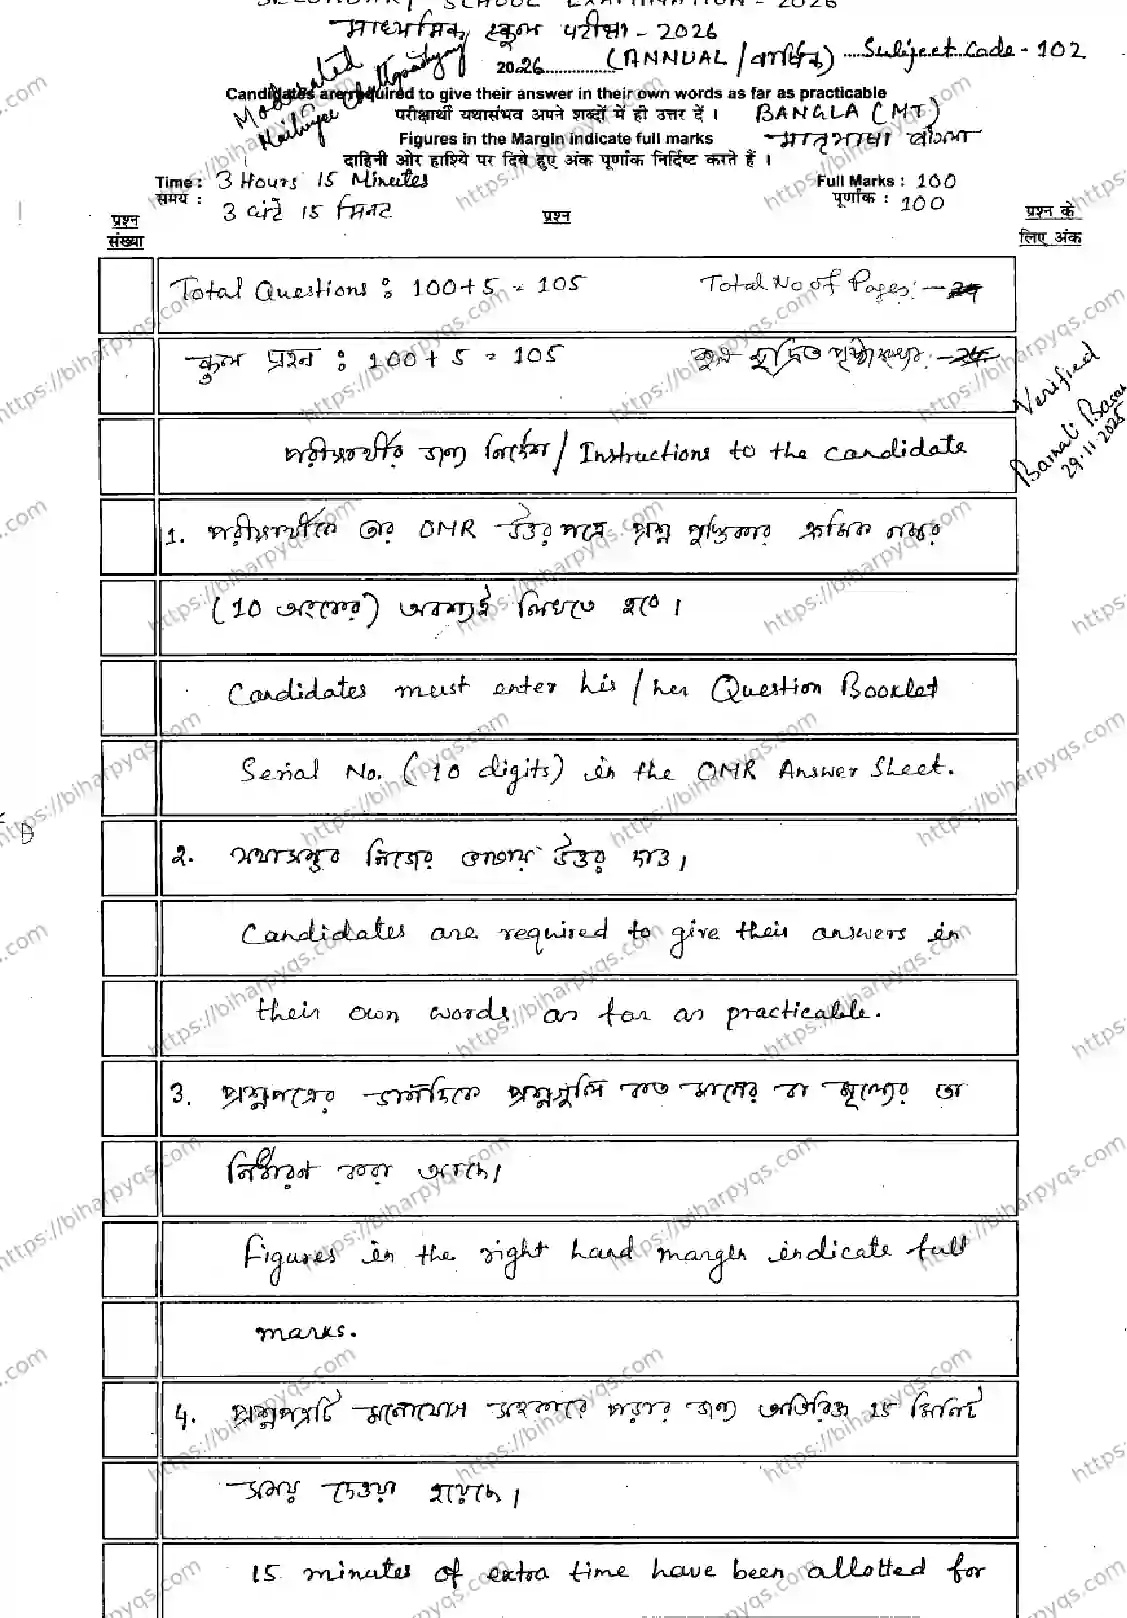 SECONDARY SCHOOL EXAMINATION - 2026
माध्यमिक स्कूल परीक्षा - 2026
2026 (ANNUAL / वार्षिक) Subject Code - 102
Moderated
Candidates are required to give their answer in their own words as far as practicable
परीक्षार्थी यथासंभव अपने शब्दों में ही उत्तर दें । BANGLA (MT)
Figures in the Margin indicate full marks মাতৃভাষা বাংলা
दाहिनी ओर हाशिये पर दिये हुए अंक पूर्णांक निर्दिष्ट करते हैं ।
Time : 3 Hours 15 Minutes Full Marks : 100
समय : 3 घंटे 15 मिनट पूर्णांक : 100
प्रश्न संख्या प्रश्न प्रश्न के लिए अंक
Total Questions : 100+5 = 105 Total No of Pages : -
কুল প্রশ্ন : 100+5 = 105
Verified
29.11.2025
পরীক্ষার্থীর জন্য নির্দেশ / Instructions to the candidate
1. পরীক্ষার্থীকে তার OMR উত্তর পত্রে প্রশ্ন পুস্তিকার ক্রমিক নম্বর
(10 অংকের) অবশ্যই লিখতে হবে ।
Candidates must enter his / her Question Booklet
Serial No. (10 digits) in the OMR Answer Sheet.
2. যথাসম্ভব নিজের ভাষায় উত্তর দাও ।
Candidates are required to give their answers in
their own words as far as practicable.
3. প্রশ্নপত্রের ডানদিকে প্রশ্নগুলি কত মানের বা মূল্যের তা
নির্ধারণ করা আছে ।
Figures in the right hand margin indicate full
marks.
4. প্রশ্নপত্রটি মনোযোগ সহকারে পড়ার জন্য অতিরিক্ত 15 মিনিট
সময় দেওয়া হয়েছে ।
15 minutes of extra time have been allotted for
https://biharpyqs.com